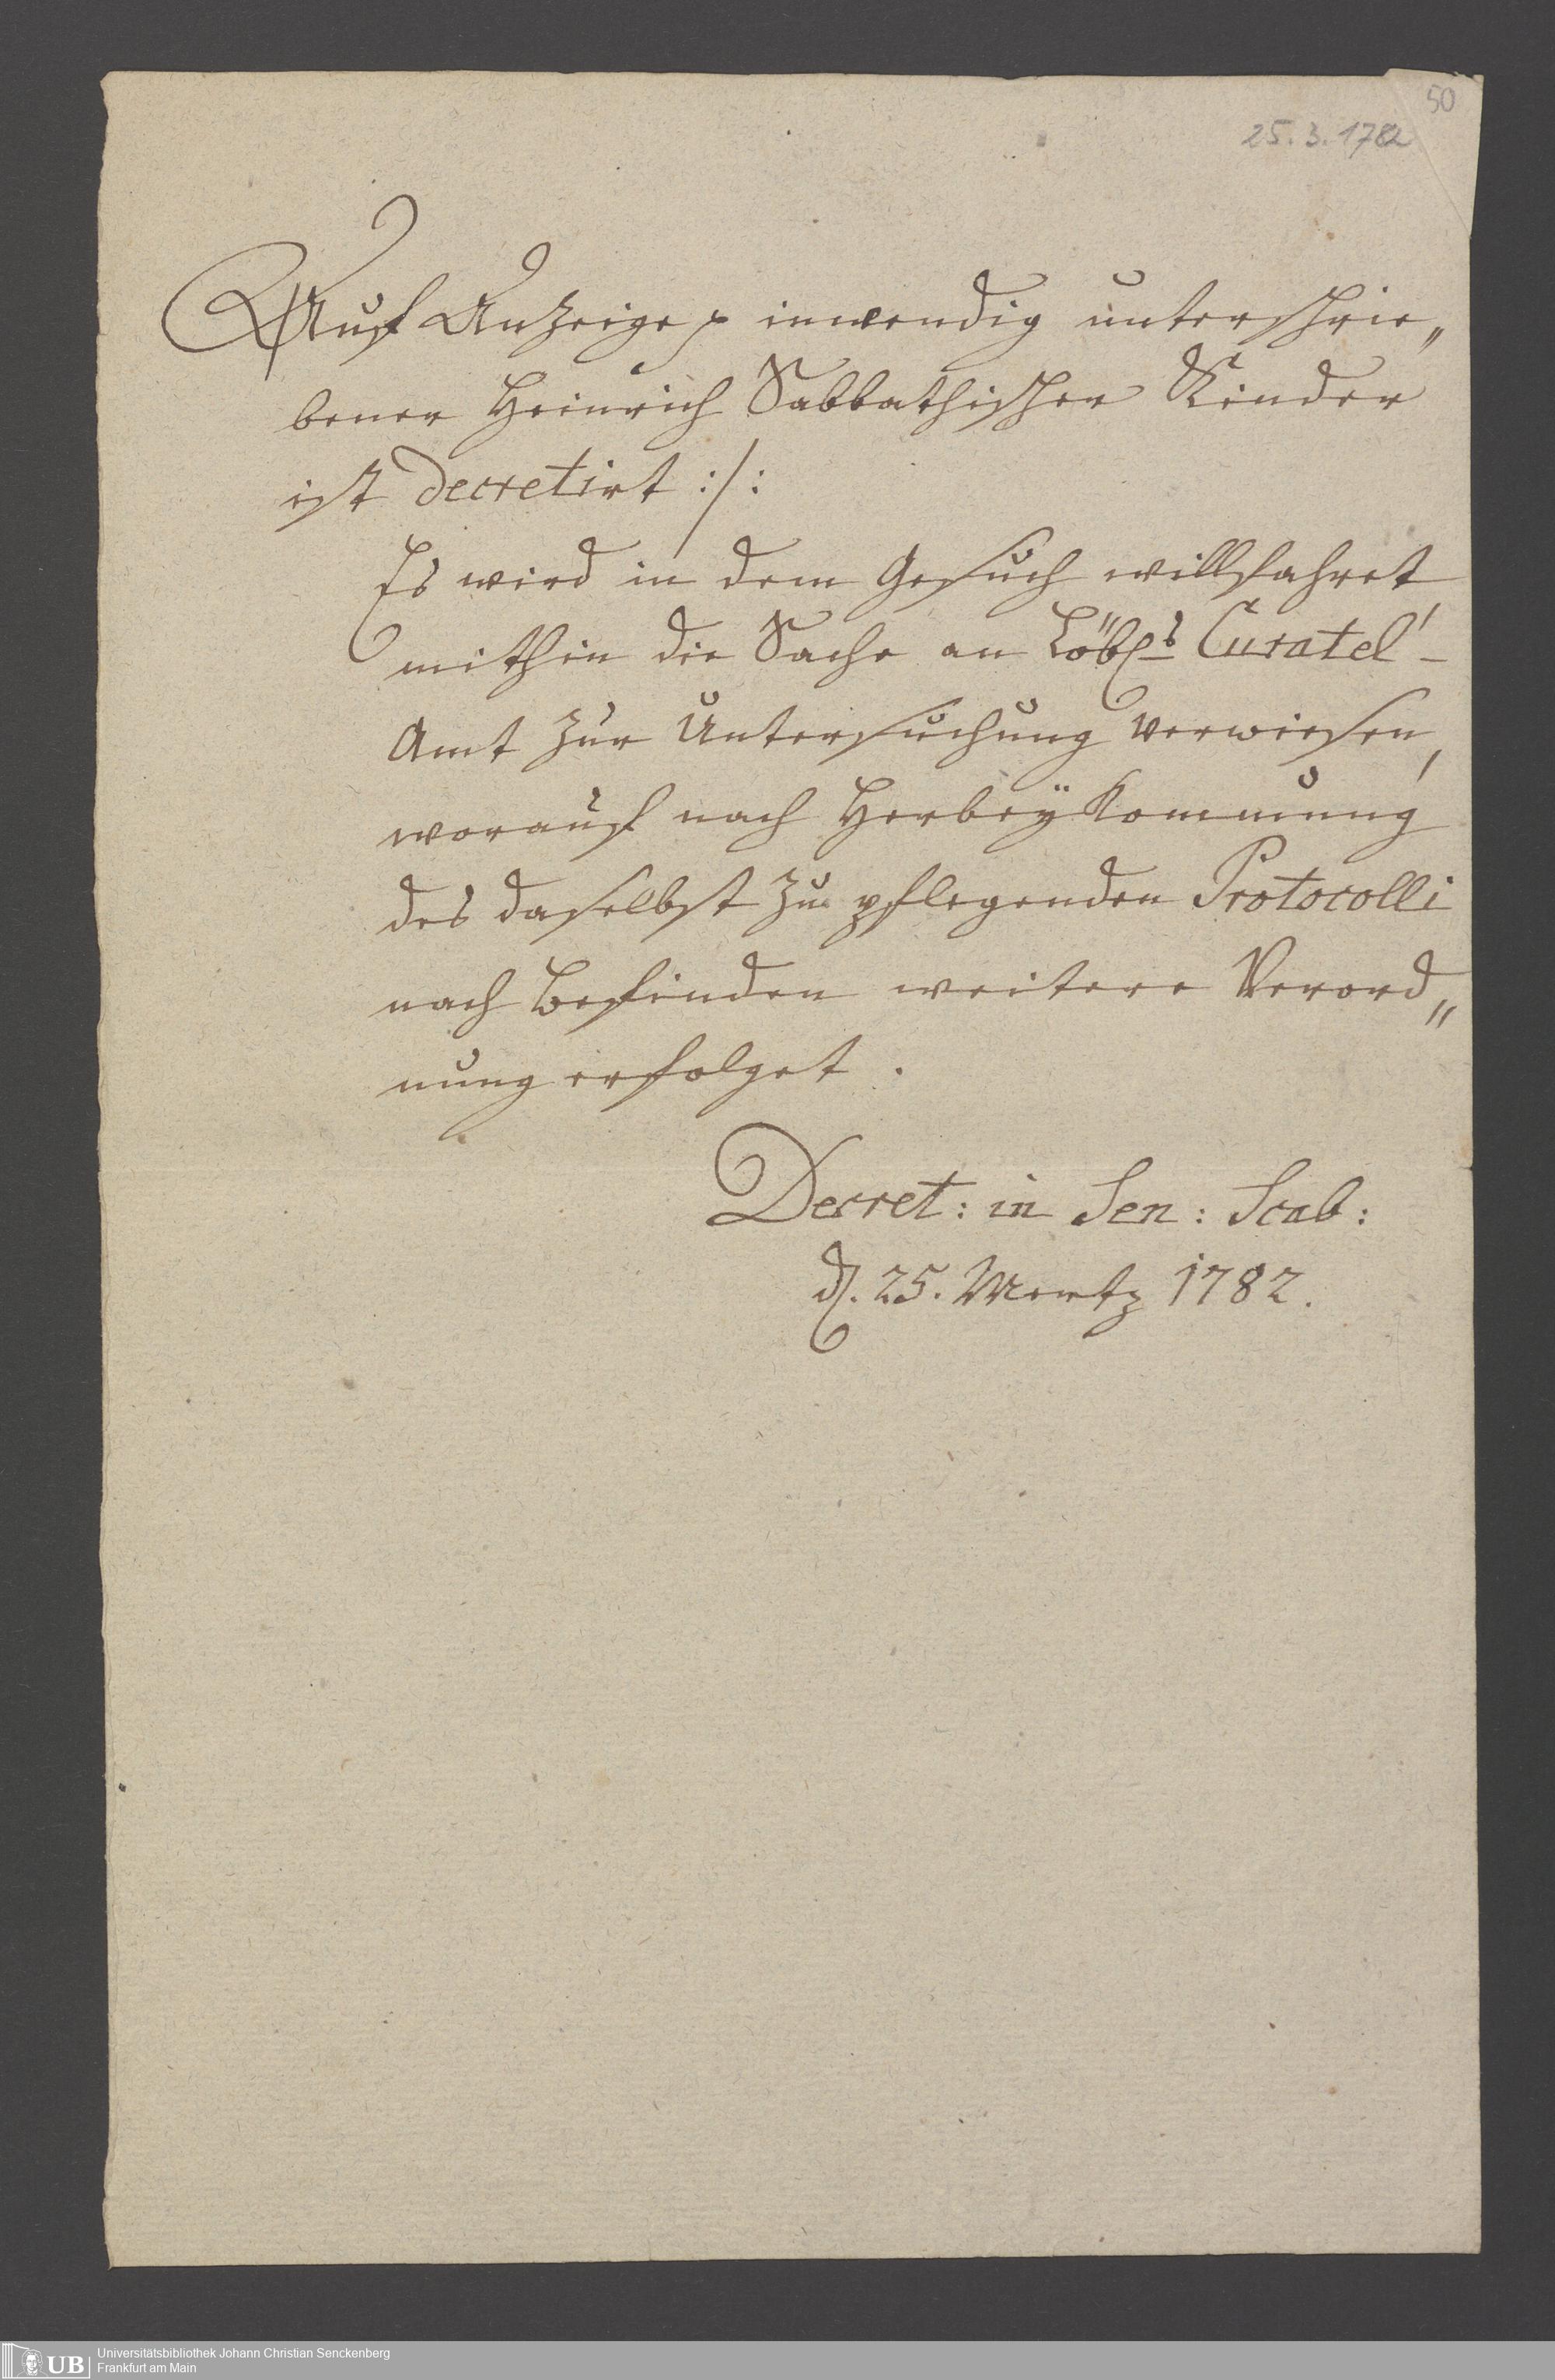 50
25.3.1782
Auf Anzeige p inwendig unterschrie„
bener Heinrich Sabbathischer Kinder
ist decretirt :/:
Es wird in dem Gesuch willfahret,
mithin die Sache an Löbls Curatel-
Amt zur Untersuchung verwiesen,
worauf nach Herbeÿkommung
des daselbst zu pflegenden Protocolli
nach Befinden weitere Verord„
nung erfolget.
Decret: in Sen: Scab:
d. 25. Mertz 1782.
UB
Universitätsbibliothek Johann Christian Senckenberg
Frankfurt am Main